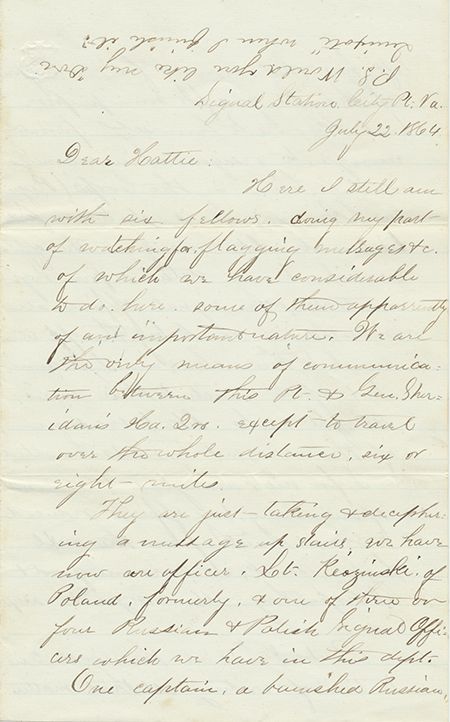 P.S. Would you like my "Don
Quixote" when I finish it?
Signal Station, City Pt. Va.
July 22. 1864.
Dear Hattie:
Here I still am
with six fellows. doing my part
of watching & flagging messages &c.
of which we have considerable
to do here. some of them apparently
of an important nature. We are
the only means of communica-
tion between this Pt. & Gen. Sher-
idan's Hd. Qrs. except to travel
over the whole distance, six or
eight miles.
They are just taking & decipher-
ing a message up stairs, we have
now an officer. Lt. of
Poland, formerly, & one of three or
four Russian & Polish Signal Offi-
cers which we have in this dept.
One captain, a banished Russian,